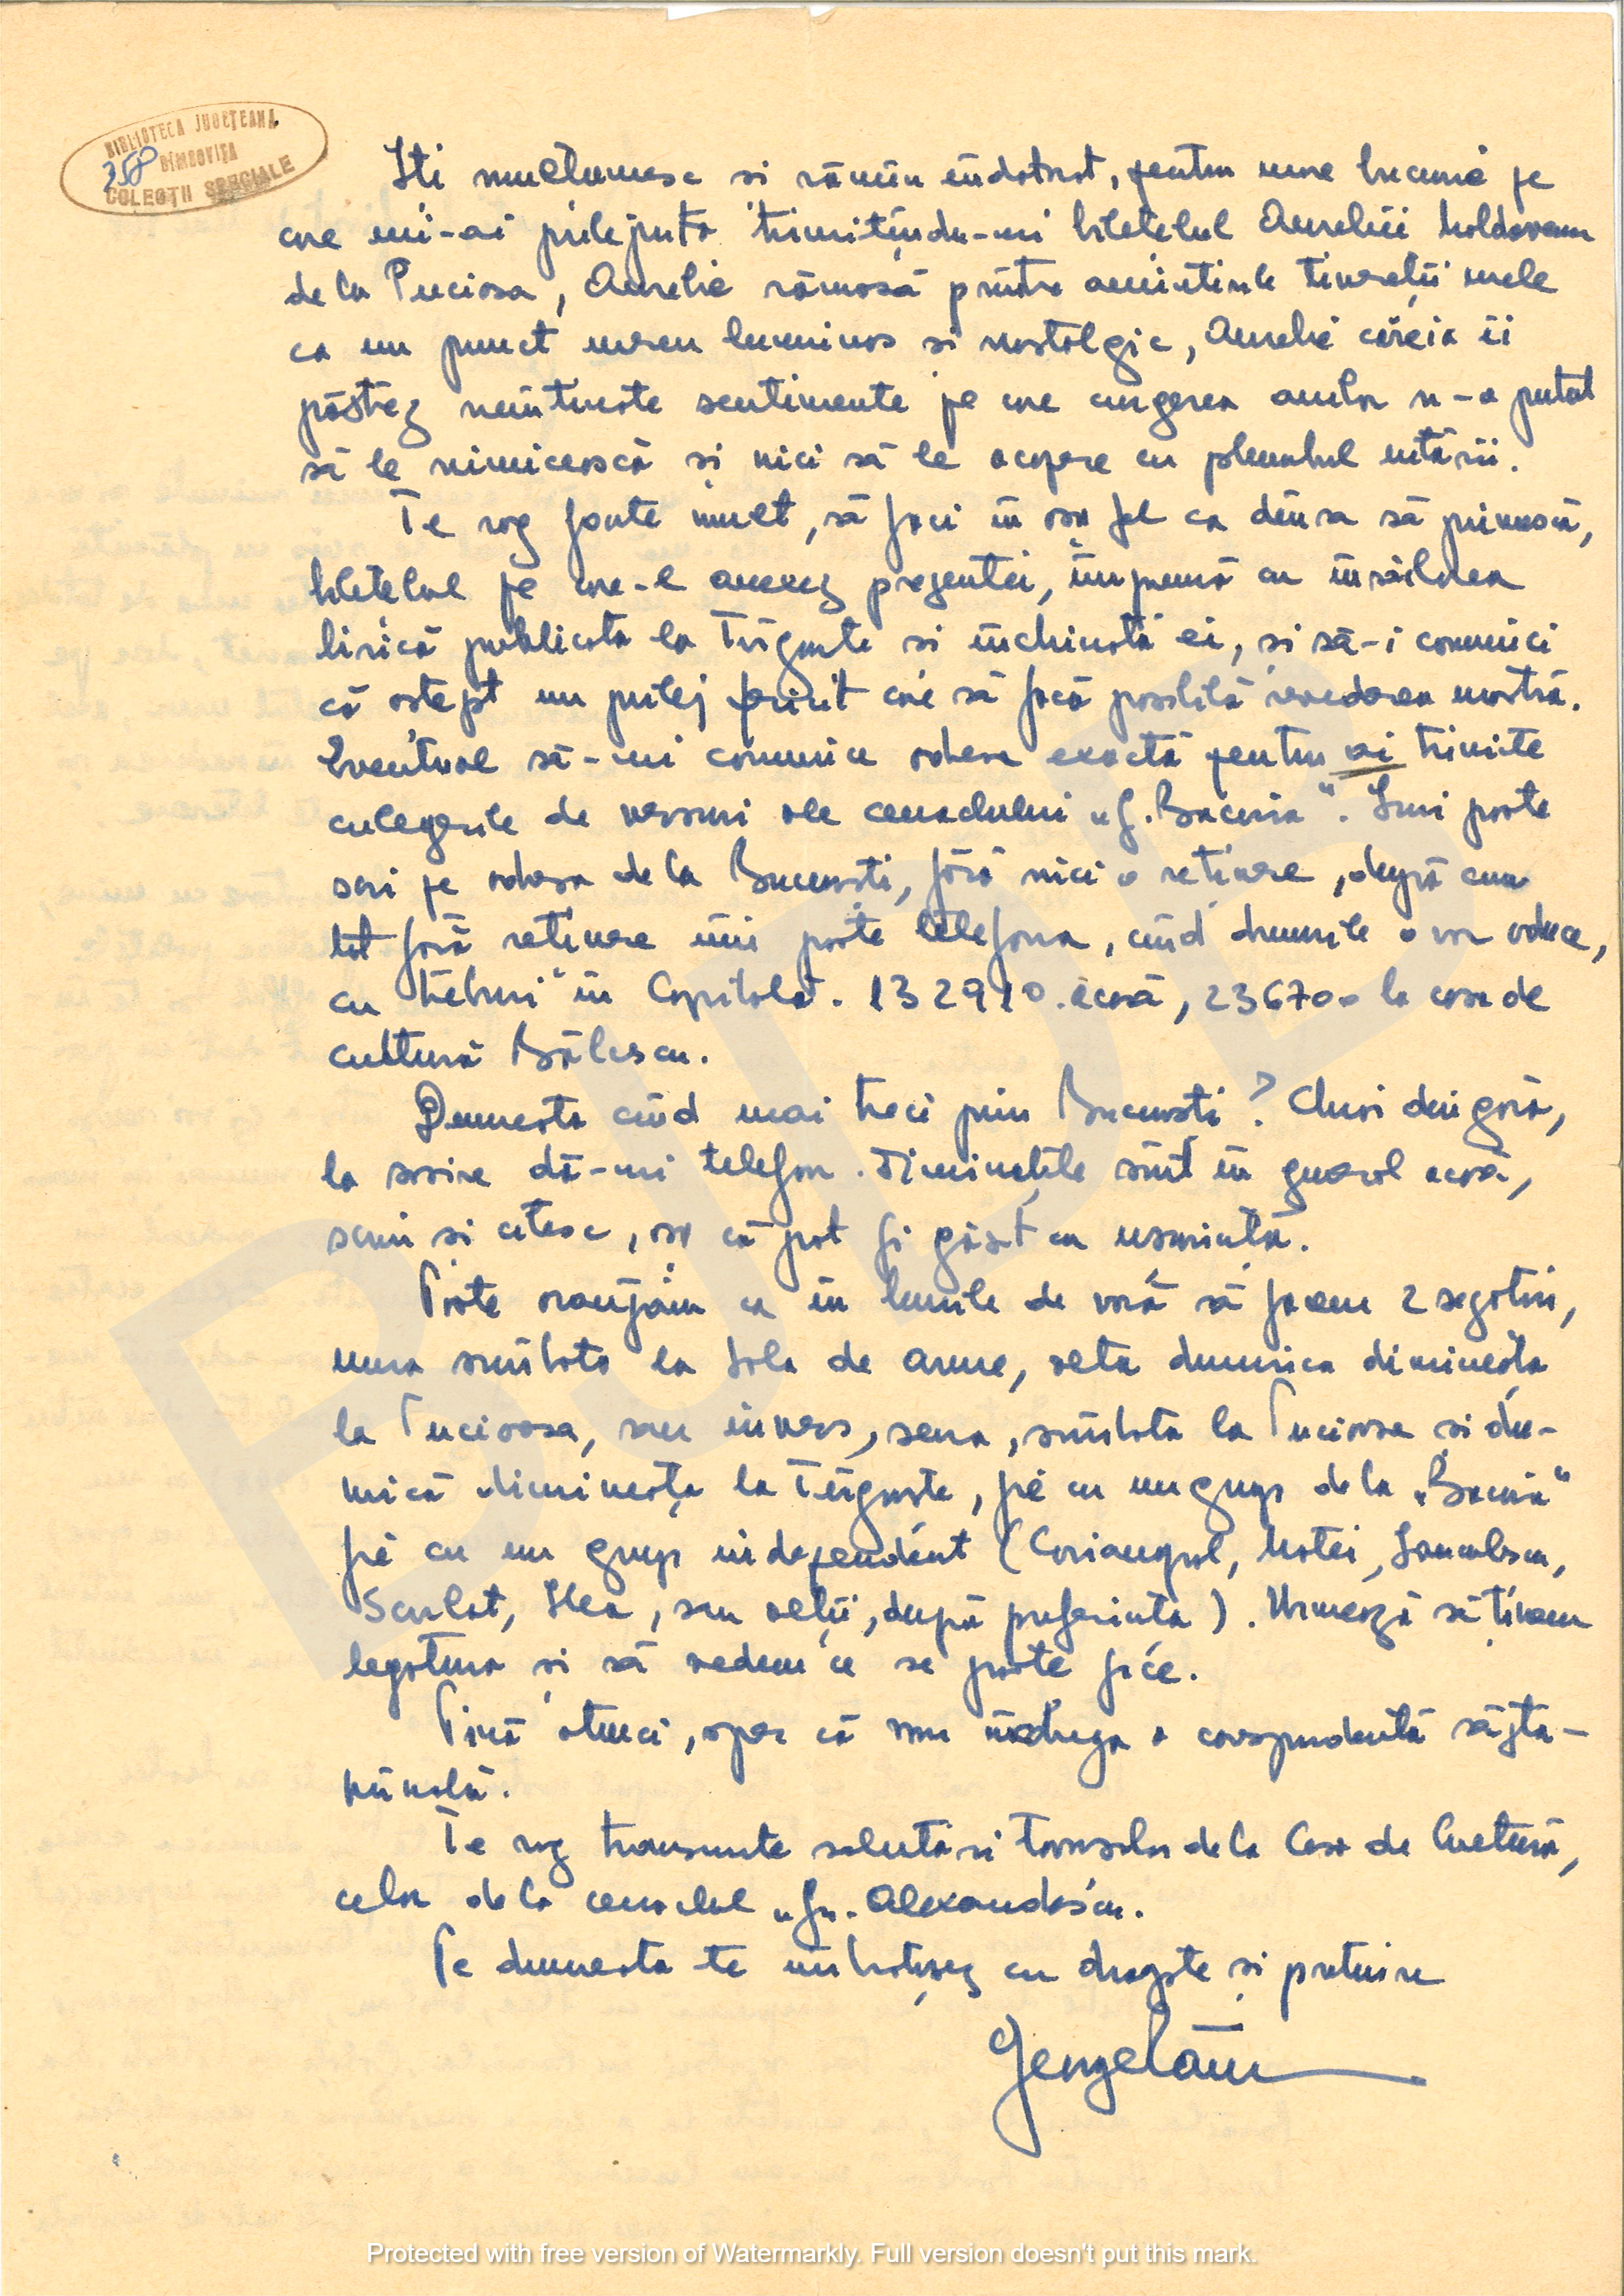 BIBLIOTECA JUDEȚEANĂ
DÎMBOVIȚA
358
COLECȚII SPECIALE
Iti multumesc si rămîn îndatorat, pentru marea bucurie pe
care mi-ai prilejuito trimitîndu-mi biletelul Aureliei Moldoveanu
de la Pucioasa, Aurelie rămasă printre amintirile tinereții mele
ca un punct mereu luminos si nostalgic, Aurelie căreia îi
păstrez neîntinate sentimente pe care curgerea anilor n-a putut
să le nimicească și nici să le acopere cu plumbul uitării.
Te rog foarte mult, să faci în așa fel ca dînsa să primească,
biletelul pe care-l anexez prezentei, împreună cu însăilarea
lirică publicată la Tîrgoviște si închinată ei, și să-i comunici
că aștept un prilej fericit care să facă posibilă revederea noastră.
Eventual să-mi comunice adresa exactă pentru ai trimite
culegerile de versuri ale cenaclului „G. Bacovia". Imi poate
scri pe adresa de la București, fără nici o reținere, după cum
tot fără reținere îmi poate telefona, cînd drumurile o vor aduce,
cu treburi în Capitală. 132910. acasă, 236700 la casa de
cultură Bălcescu.
Dumneata cînd mai treci prin București? Chiar din gară,
la sosire dă-mi telefon. Diminețile sînt în general acasă,
scriu și citesc, așa că pot fi găsit cu usurință.
Poate aranjăm ca în lunile de vară să facem 2 șezători,
una sîmbăta la Sala de arme, alta duminica dimineața
la Pucioasa, sau invers, seara, sîmbătă la Pucioasa si du-
mică dimineața la Tîrgoviște, fie cu un grup de la „Bacovia"
fie cu un grup independent (Corianopol, Matei,
Scarlat, Ilea, sau alții, după preferință). Urmează să ținem
legătura și să vedem ce se poate face.
Pînă atunci, sper că vom înodăga o corespondență săpta-
mînală.
Te rog transmite salutări tovarășilor de la Casa de Cultură,
celor de la cenaclul „Gr. Alexandrescu.
Pe dumneata te îmbrățișez cu dragoste și prețuire